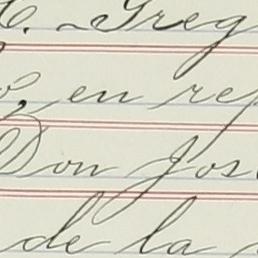 Greg
en rep
Don Jos
de la